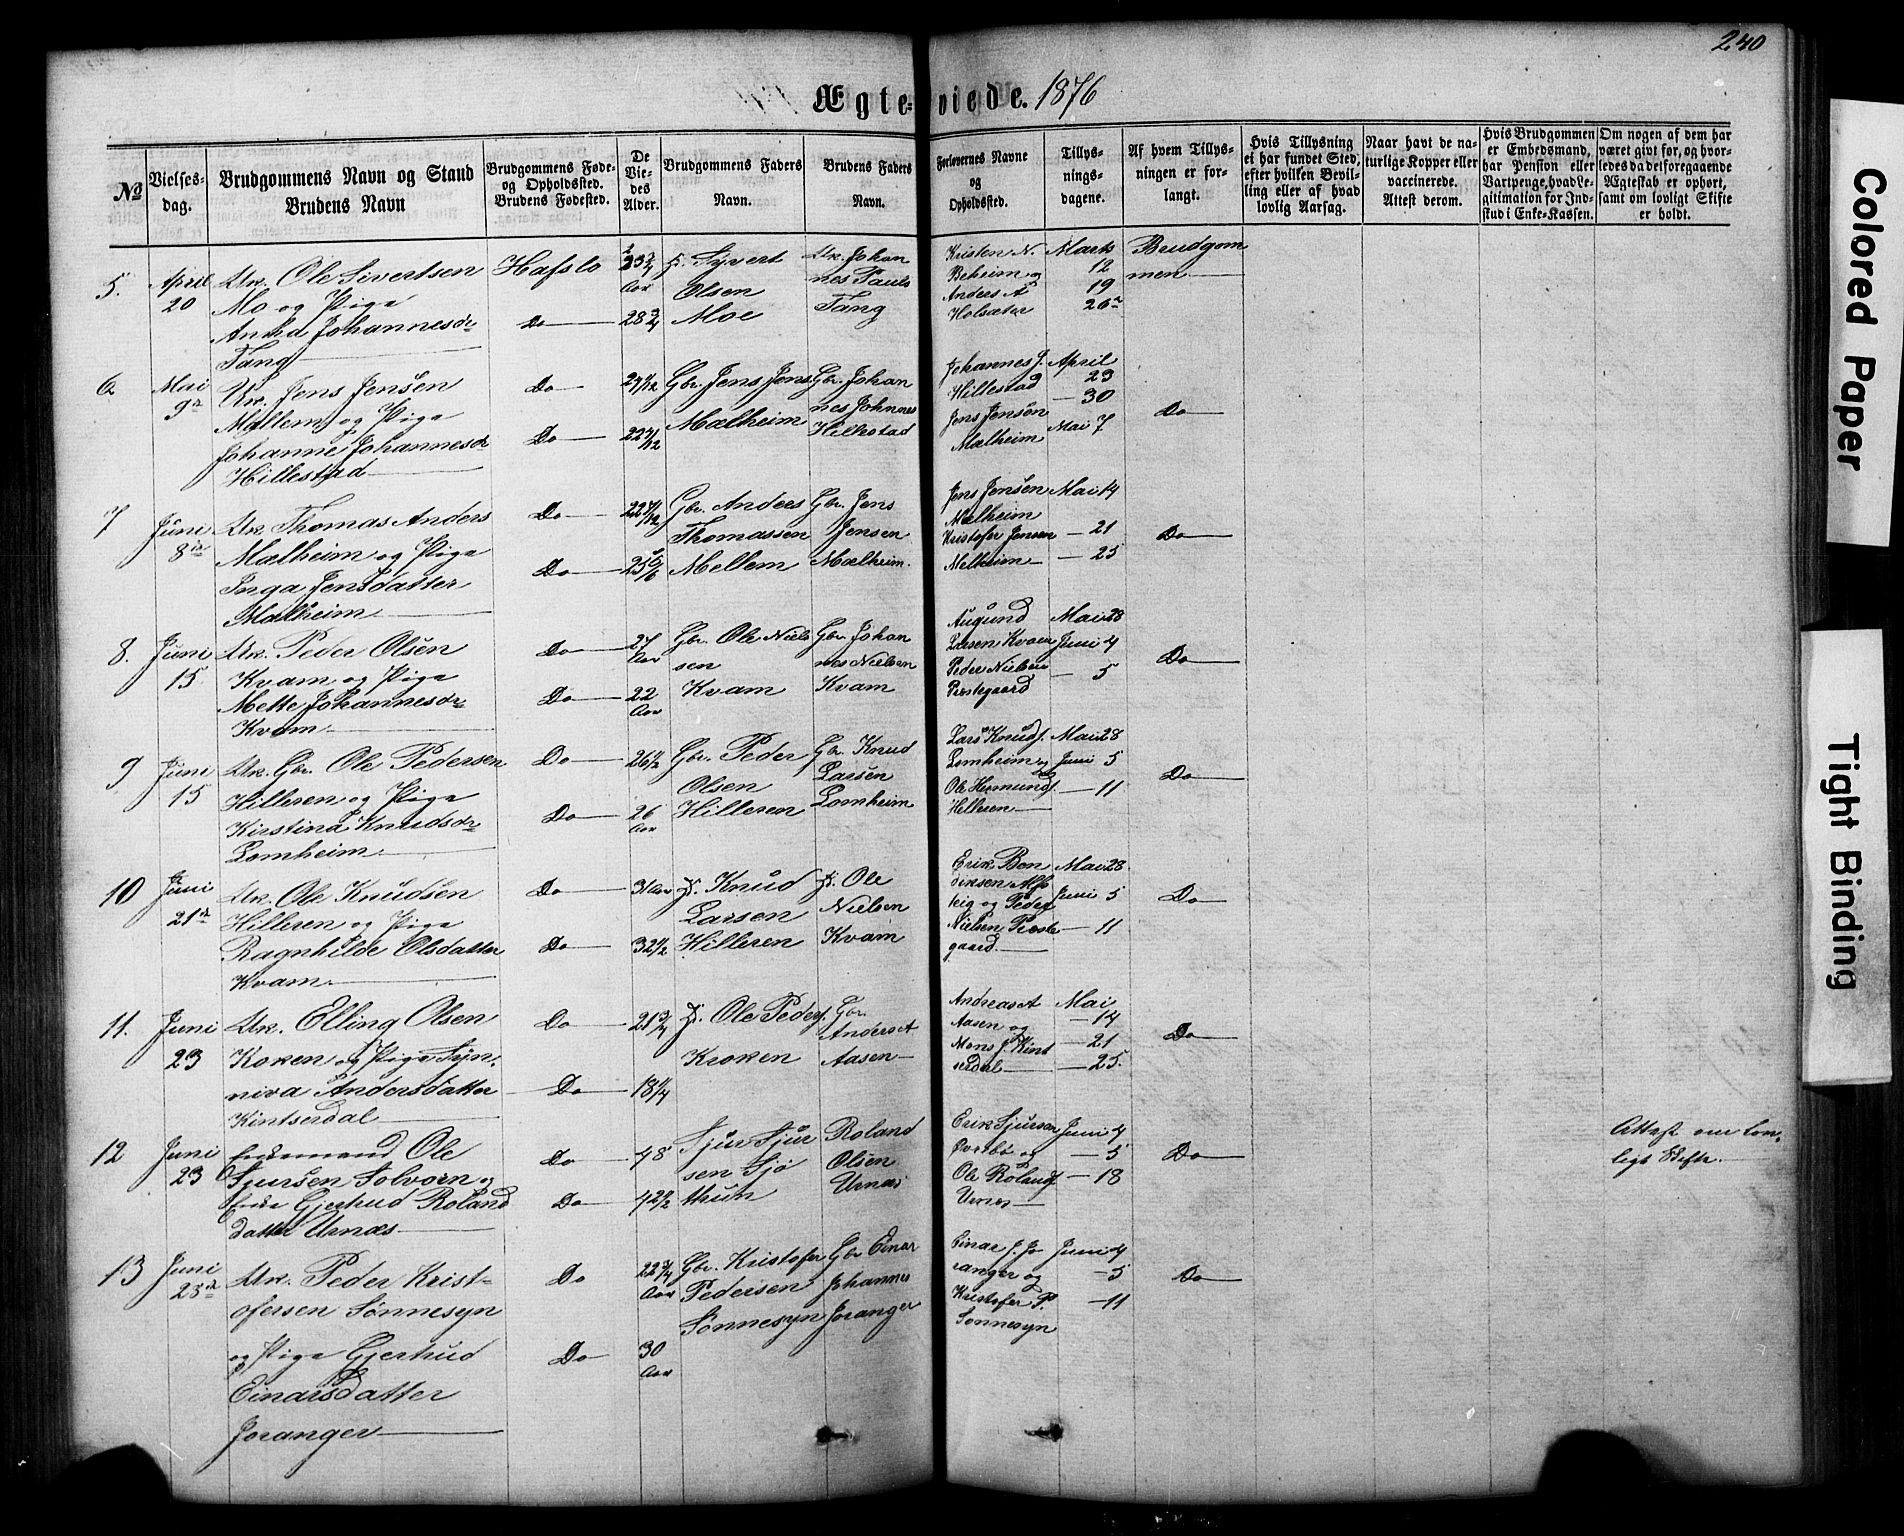 240
Ægteviede. 1876
No
Vielses-
dag.
Brudgommens Navn og Stand
Brudens Navn
Brudgommens Føde-
og Opholdssted.
Brudens Fødested.
De
Vie-
des
Alder.
Brudgommens Faders
Navn.
Brudens Faders
Navn.
Forlovernes Navne
og
Opholdssted.
Tillys-
nings-
dagene.
Af hvem Tillys-
ningen er for-
langt.
Hvis Tillysning
ei har fundet Sted,
efter hvilken Bevil-
ling eller af hvad
lovlig Aarsag.
Naar havt de na-
turlige Kopper eller
vaccinerede.
Attest derom.
Hvis Brudgommen
er Embedsmand,
har Pension eller
Vartpenge, hvad Le-
gitimation for Ind-
skud i Enke-Kassen.
Om nogen af dem har
været givt før, og hvor-
ledes da det foregaaende
Ægteskab er ophørt,
samt om lovligt Skifte
er holdt.
5.
April
20
Uk. Ole Sivertsen
Mo og Pige
Anna Johannesdr
Tang
Hafslo
Do
Aar
28 3/4
Syvert
Olsen
Moe
Uk. Johan
nes Pauls
Tang
Kristen N.
Beheim og
Anders A
Holsæter
Marts
12
19
26
Brudgom
men
6
Mai
9
Uk. Jens Jensen
Mellem og Pige
Johanne Johannesdr
Hillestad
Do
Do
Gbr. Jens Jens
Mælheim
Gbr. Johan
nes Johnnes
Hillestad
Johannes J.
Hillestad
Jens Jensen
Mælheim
April
23
30
Mai 7
Do
7
Juni
8
Uk Thomas Anders
Malheim og Pige
Inga Jensdatter
Malheim
Do
Do
25 5/6
Gbr. Anders
Thomassen
Mellem
Gbr. Jens
Jensen
Mælheim.
Jens Jensen
Mælheim
Kristofer Jensen
Melheim
Mai 14
21
25
Do
8.
Juni
15
Uk. Peder Olsen
Kvam og Pige
Mette Johannesdr
Kvam
Do
Do
27
Aar
22
Aar
Gbr. Ole Niels
sen
Kvam
Gbr. Johan
nes Nielsen
Kvam
Augund
Larsen Kvam
Peder Nielsen
Præstegaard
Mai 28
Juni 4
5
Do
9
Juni
15
Uk. Gbr. Ole Pedersen
Hilleren og Pige
Kirstina Knudsdr
Lomheim
Do
Do
26 1/2
26
Aar
Gbr. Peder
Olsen
Hilleren
Gbr Knud
Larsen
Lomheim
Lars Knuds.
Lomheim og
Ole Hermunds.
Hilleren
Mai 28
Juni 5
11
Do
10
Juni
21
Uk. Ole Knudsen
Hilleren og Pige
Ragnhilde Olsdatter
Kvam
Do
Do
31 Aar
32 1/2
Knud
Larsen
Hilleren
Ole
Nielsen
Kvam
Erik Ben
diksen
og Peder
Nielsen Præste
gaard
Mai 28
Juni 5
11
Do
11.
Juni
23
Uk. Elling Olsen
Kroken og Pige Syn-
niva Andersdatter
Kintserdal
Do
Do
21 3/4
18 1/4
Ole Peders.
Kroken
Gbr.
Anders A
Aasen
Andreas A
Aasen og
Mons J. Kint
serdal
Mai
14
21
25
Do
12
Juni
23
Enkemand Ole
Sjursen Solvorn og
Enke Gjertrud Roland
datter Urnæs
Do
Do
48
42 1/2
Sjur Sjur
sen Sjø
thun
Roland
Olsen
Urnæs
Erik Sjursen
Øvrebø og
Ole Rolands.
Urnes
Juni 4
5
18
Do
Attest om lov-
ligt Skifte
13
Juni
23
Uk. Peder Krist-
ofersen Sønnesyn
og Pige Gjertrud
Einarsdatter
Joranger
Do
Do
22 3/4
Aar
30
Aar
Gbr. Kristofer
Pedersen
Sønnesyn
Gbr Einar
Johannes
Joranger
Einar J. Jo
ranger og
Kristofer P.
Sønnesyn
Juni 4
5
11
Do
Colored Paper
Tight Binding